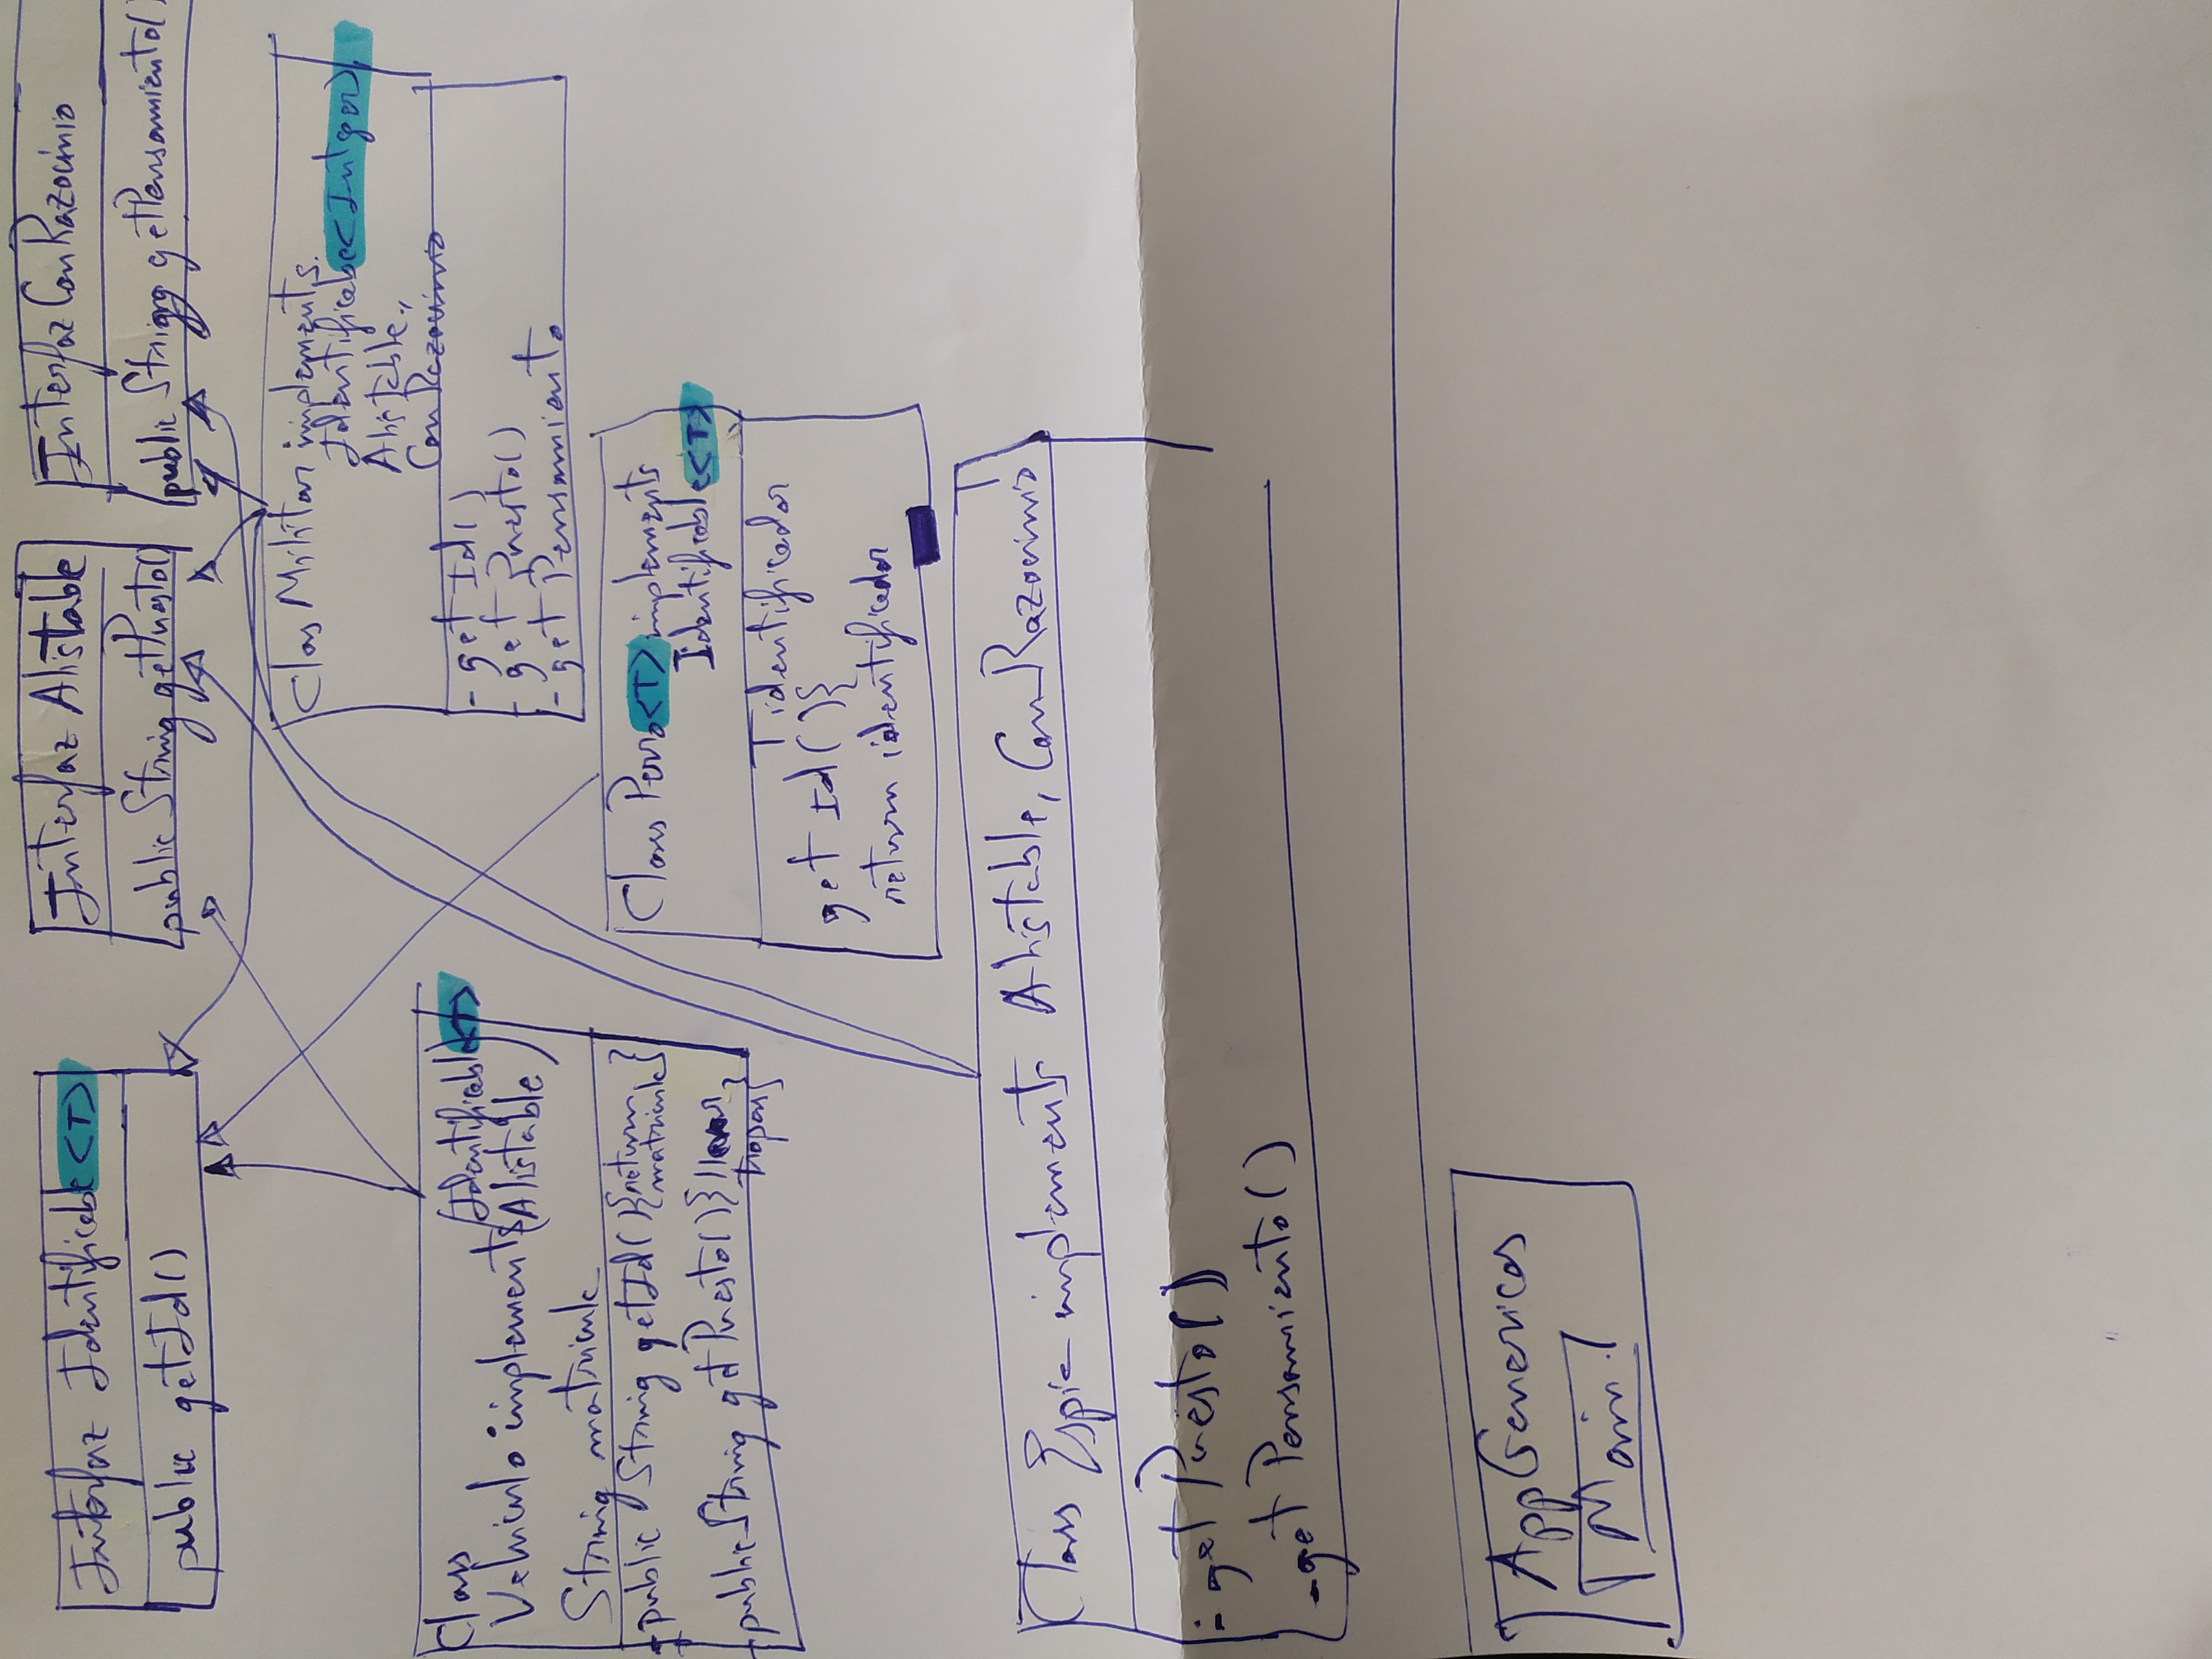 Interfaz Identificable<T>
public getId()
Interfaz Alistable
public String getPuesto()
Interfaz ConRazocinio
public String getPensamiento()
Clas Militar implements
Identificabe<Integer>,
Alistable,
ConRazocinio
- get Id()
- get Puesto()
- get Pensamiento
Class
Vehiculo implements
Identificable<T>
Alistable
String matricula
- public String getId(){return
matricula}
- public String getPuesto(){llevar
tropas}
Class Perro<T> implements
Identificable<T>
T identificador
get Id(){
return identificador
Class Espia implements Alistable, ConRazocinio
- get Puesto()
- get Pensamiento()
AppGenericos
Main